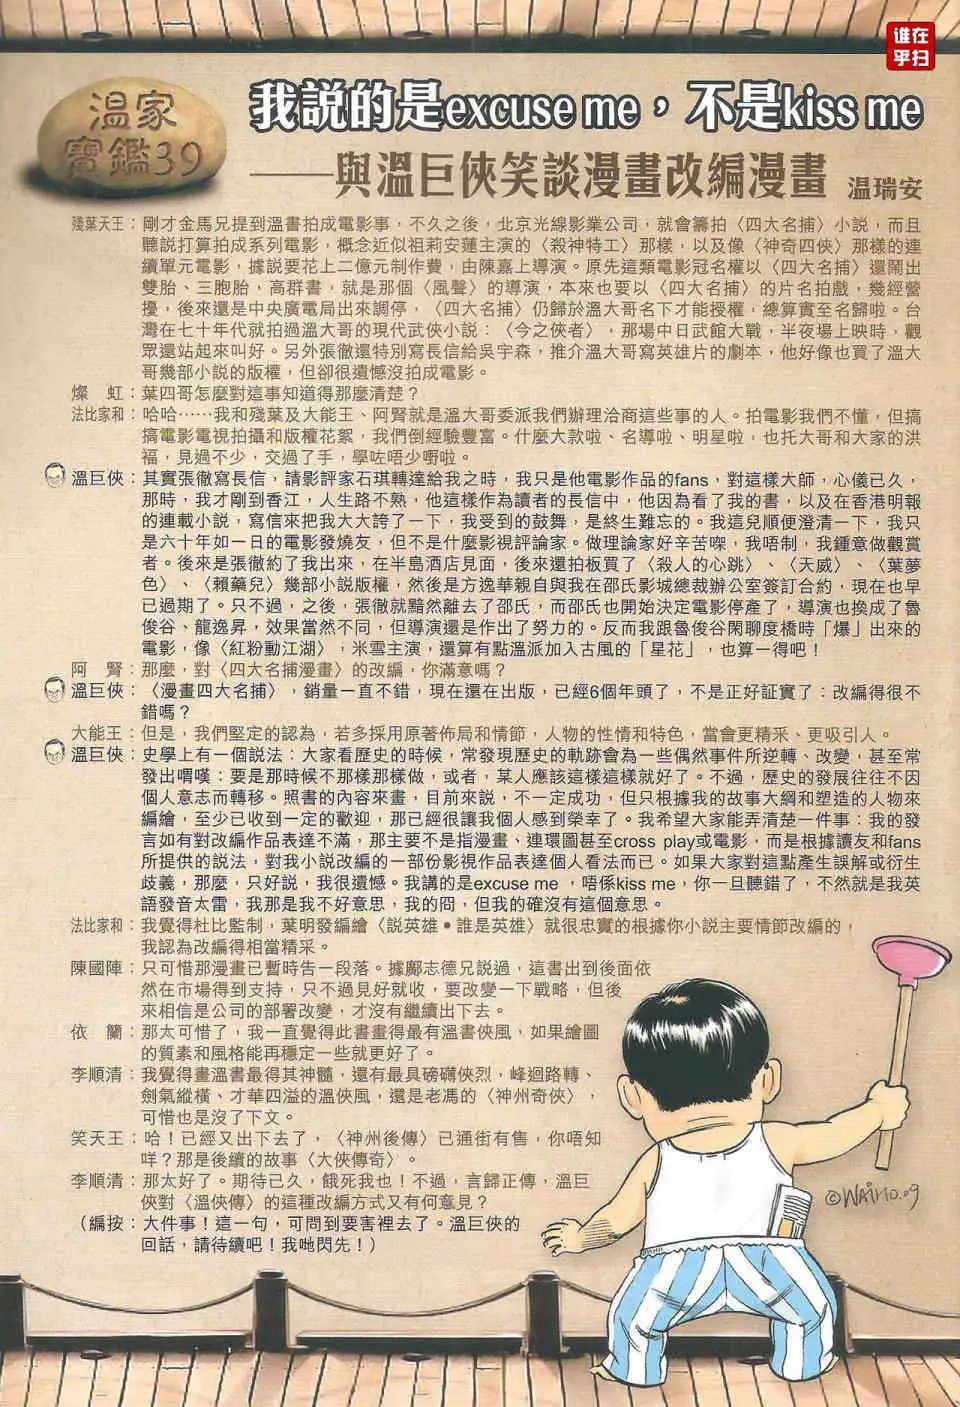 谁在
乎扫
溫家
寶鑑39
我説的是excuse me，不是kiss me
——與溫巨俠笑談漫畫改編漫畫 溫瑞安
殘葉天王：剛才金馬兄提到溫書拍成電影事，不久之後，北京光線影業公司，就會籌拍〈四大名捕〉小説，而且
聽説打算拍成系列電影，概念近似祖莉安蓮主演的〈殺神特工〉那樣，以及像〈神奇四俠〉那樣的連
續單元電影，據説要花上二億元制作費，由陳嘉上導演。原先這類電影冠名權以〈四大名捕〉還鬧出
雙胎、三胞胎，高群書，就是那個〈風聲〉的導演，本來也要以〈四大名捕〉的片名拍戲，幾經營
擾，後來還是中央廣電局出來調停，〈四大名捕〉仍歸於溫大哥名下才能授權，總算實至名歸啦。台
灣在七十年代就拍過溫大哥的現代武俠小説：〈今之俠者〉，那場中日武館大戰，半夜場上映時，觀
眾還站起來叫好。另外張徹還特別寫長信給吳宇森，推介溫大哥寫英雄片的劇本，他好像也買了溫大
哥幾部小説的版權，但卻很遺憾沒拍成電影。
燦　虹：葉四哥怎麼對這事知道得那麼清楚？
法比家和：哈哈……我和殘葉及大能王、阿腎就是溫大哥委派我們辦理洽商這些事的人。拍電影我們不懂，但搞
搞電影電視拍攝和版權花絮，我們倒經驗豐富。什麼大款啦、名導啦、明星啦，也托大哥和大家的洪
福，見過不少，交過了手，學咗唔少嘢啦。
溫巨俠：其實張徹寫長信，請影評家石琪轉達給我之時，我只是他電影作品的fans，對這樣大師，心儀已久，
那時，我才剛到香江，人生路不熟，他這樣作為讀者的長信中，他因為看了我的書，以及在香港明報
的連載小説，寫信來把我大大誇了一下，我受到的鼓舞，是終生難忘的。我這兒順便澄清一下，我只
是六十年如一日的電影發燒友，但不是什麼影視評論家。做理論家好辛苦㗎，我唔制，我鍾意做觀賞
者。後來是張徹約了我出來，在半島酒店見面，後來還拍板買了〈殺人的心跳〉、〈天威〉、〈葉夢
色〉、〈賴藥兒〉幾部小説版權，然後是方逸華親自與我在邵氏影城總裁辦公室簽訂合約，現在也早
已過期了。只不過，之後，張徹就黯然離去了邵氏，而邵氏也開始決定電影停產了，導演也換成了魯
俊谷、龍逸昇，效果當然不同，但導演還是作出了努力的。反而我跟魯俊谷閑聊度橋時「爆」出來的
電影，像〈紅粉動江湖〉，米雪主演，還算有點溫派加入古風的「星花」，也算一得吧！
阿　腎：那麼，對〈四大名捕漫畫〉的改編，你滿意嗎？
溫巨俠：〈漫畫四大名捕〉，銷量一直不錯，現在還在出版，已經6個年頭了，不是正好証實了：改編得很不
錯嗎？
大能王：但是，我們堅定的認為，若多採用原著佈局和情節，人物的性情和特色，當會更精釆、更吸引人。
溫巨俠：史學上有一個説法：大家看歷史的時候，常發現歷史的軌跡會為一些偶然事件所逆轉、改變，甚至常
發出喟嘆：要是那時候不那樣那樣做，或者，某人應該這樣這樣就好了。不過，歷史的發展往往不因
個人意志而轉移。照書的內容來畫，目前來説，不一定成功，但只根據我的故事大綱和塑造的人物來
編繪，至少已收到一定的歡迎，那已經很讓我個人感到榮幸了。我希望大家能弄清楚一件事：我的發
言如有對改編作品表達不滿，那主要不是指漫畫、連環圖甚至cross play或電影，而是根據讀友和fans
所提供的説法，對我小説改編的一部份影視作品表達個人看法而已。如果大家對這點產生誤解或衍生
歧義，那麼，只好説，我很遺憾。我講的是excuse me，唔係kiss me，你一旦聽錯了，不然就是我英
語發音太雷，我那是我不好意思，我的囧，但我的確沒有這個意思。
法比家和：我覺得杜比監制，葉明發編繪〈説英雄•誰是英雄〉就很忠實的根據你小説主要情節改編的，
我認為改編得相當精采。
陳國陣：只可惜那漫畫已暫時告一段落。據鄺志德兄説過，這書出到後面依
然在市場得到支持，只不過見好就收，要改變一下戰略，但後
來相信是公司的部署改變，才沒有繼續出下去。
依　蘭：那太可惜了，我一直覺得此書畫得最有溫書俠風，如果繪圖
的質素和風格能再穩定一些就更好了。
李順清：我覺得畫溫書最得其神髓，還有最具磅礴俠烈，峰迴路轉、
劍氣縱橫、才華四溢的溫俠風，還是老馮的〈神州奇俠〉，
可惜也是沒了下文。
笑天王：哈！已經又出下去了，〈神州後傳〉已通街有售，你唔知
咩？那是後續的故事〈大俠傳奇〉。
李順清：那太好了。期待已久，餓死我也！不過，言歸正傳，溫巨
俠對〈溫俠傳〉的這種改編方式又有何意見？
（編按：大件事！這一句，可問到要害裡去了。溫巨俠的
回話，請待續吧！我哋閃先！）
©WAIHO.09